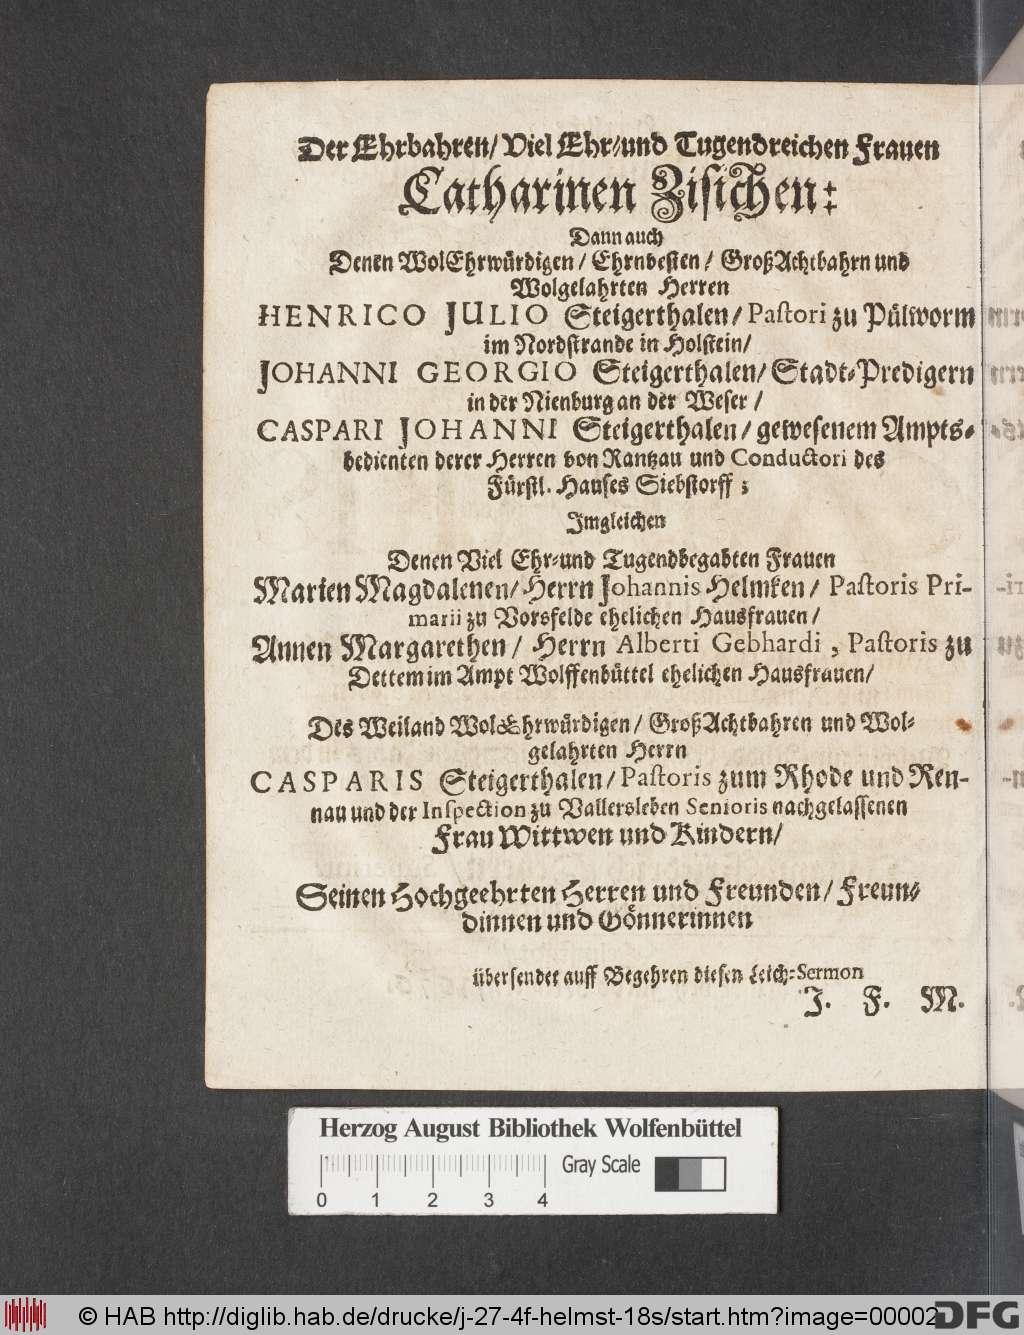 Der Ehrbahren/ Viel Ehr-und Tugendreichen Frauen
Catharinen Zisichen:
Dann auch
Denen WolEhrwürdigen/ Ehrnvesten/ GroßAchtbahrn und
Wolgelahrten Herren
HENRICO JULIO Steigerthalen/ Pastori zu Pülworm
im Nordstrande in Holstein/
JOHANNI GEORGIO Steigerthalen/ Stadt-Predigern
in der Nienburg an der Weser/
CASPARI JOHANNI Steigerthalen/ gewesenem Ampts-
bedienten derer Herren von Rantzau und Conductori des
Fürstl. Hauses Siebstorff;
Imgleichen
Denen Viel Ehr-und Tugendbegabten Frauen
Marien Magdalenen/ Herrn Johannis Helmken/ Pastoris Pri-
marii zu Vorsfelde ehelichen Hausfrauen/
Annen Margarethen/ Herrn Alberti Gebhardi, Pastoris zu
Dettem im Ampt Wolffenbüttel ehelichen Hausfrauen/
Des Weiland WolEhrwürdigen/ GroßAchtbahren und Wol-
gelahrten Herrn
CASPARIS Steigerthalen/ Pastoris zum Rhode und Ren-
nau und der Inspection zu Vallersleben Senioris nachgelassenen
Frau Wittwen und Kindern/
Seinen Hochgeehrten Herren und Freunden/ Freun-
dinnen und Gönnerinnen
übersendet auff Begehren diesen Leich-Sermon
J. F. M.
Herzog August Bibliothek Wolfenbüttel
Gray Scale
0 1 2 3 4
© HAB http://diglib.hab.de/drucke/j-27-4f-helmst-18s/start.htm?image=00002
DFG